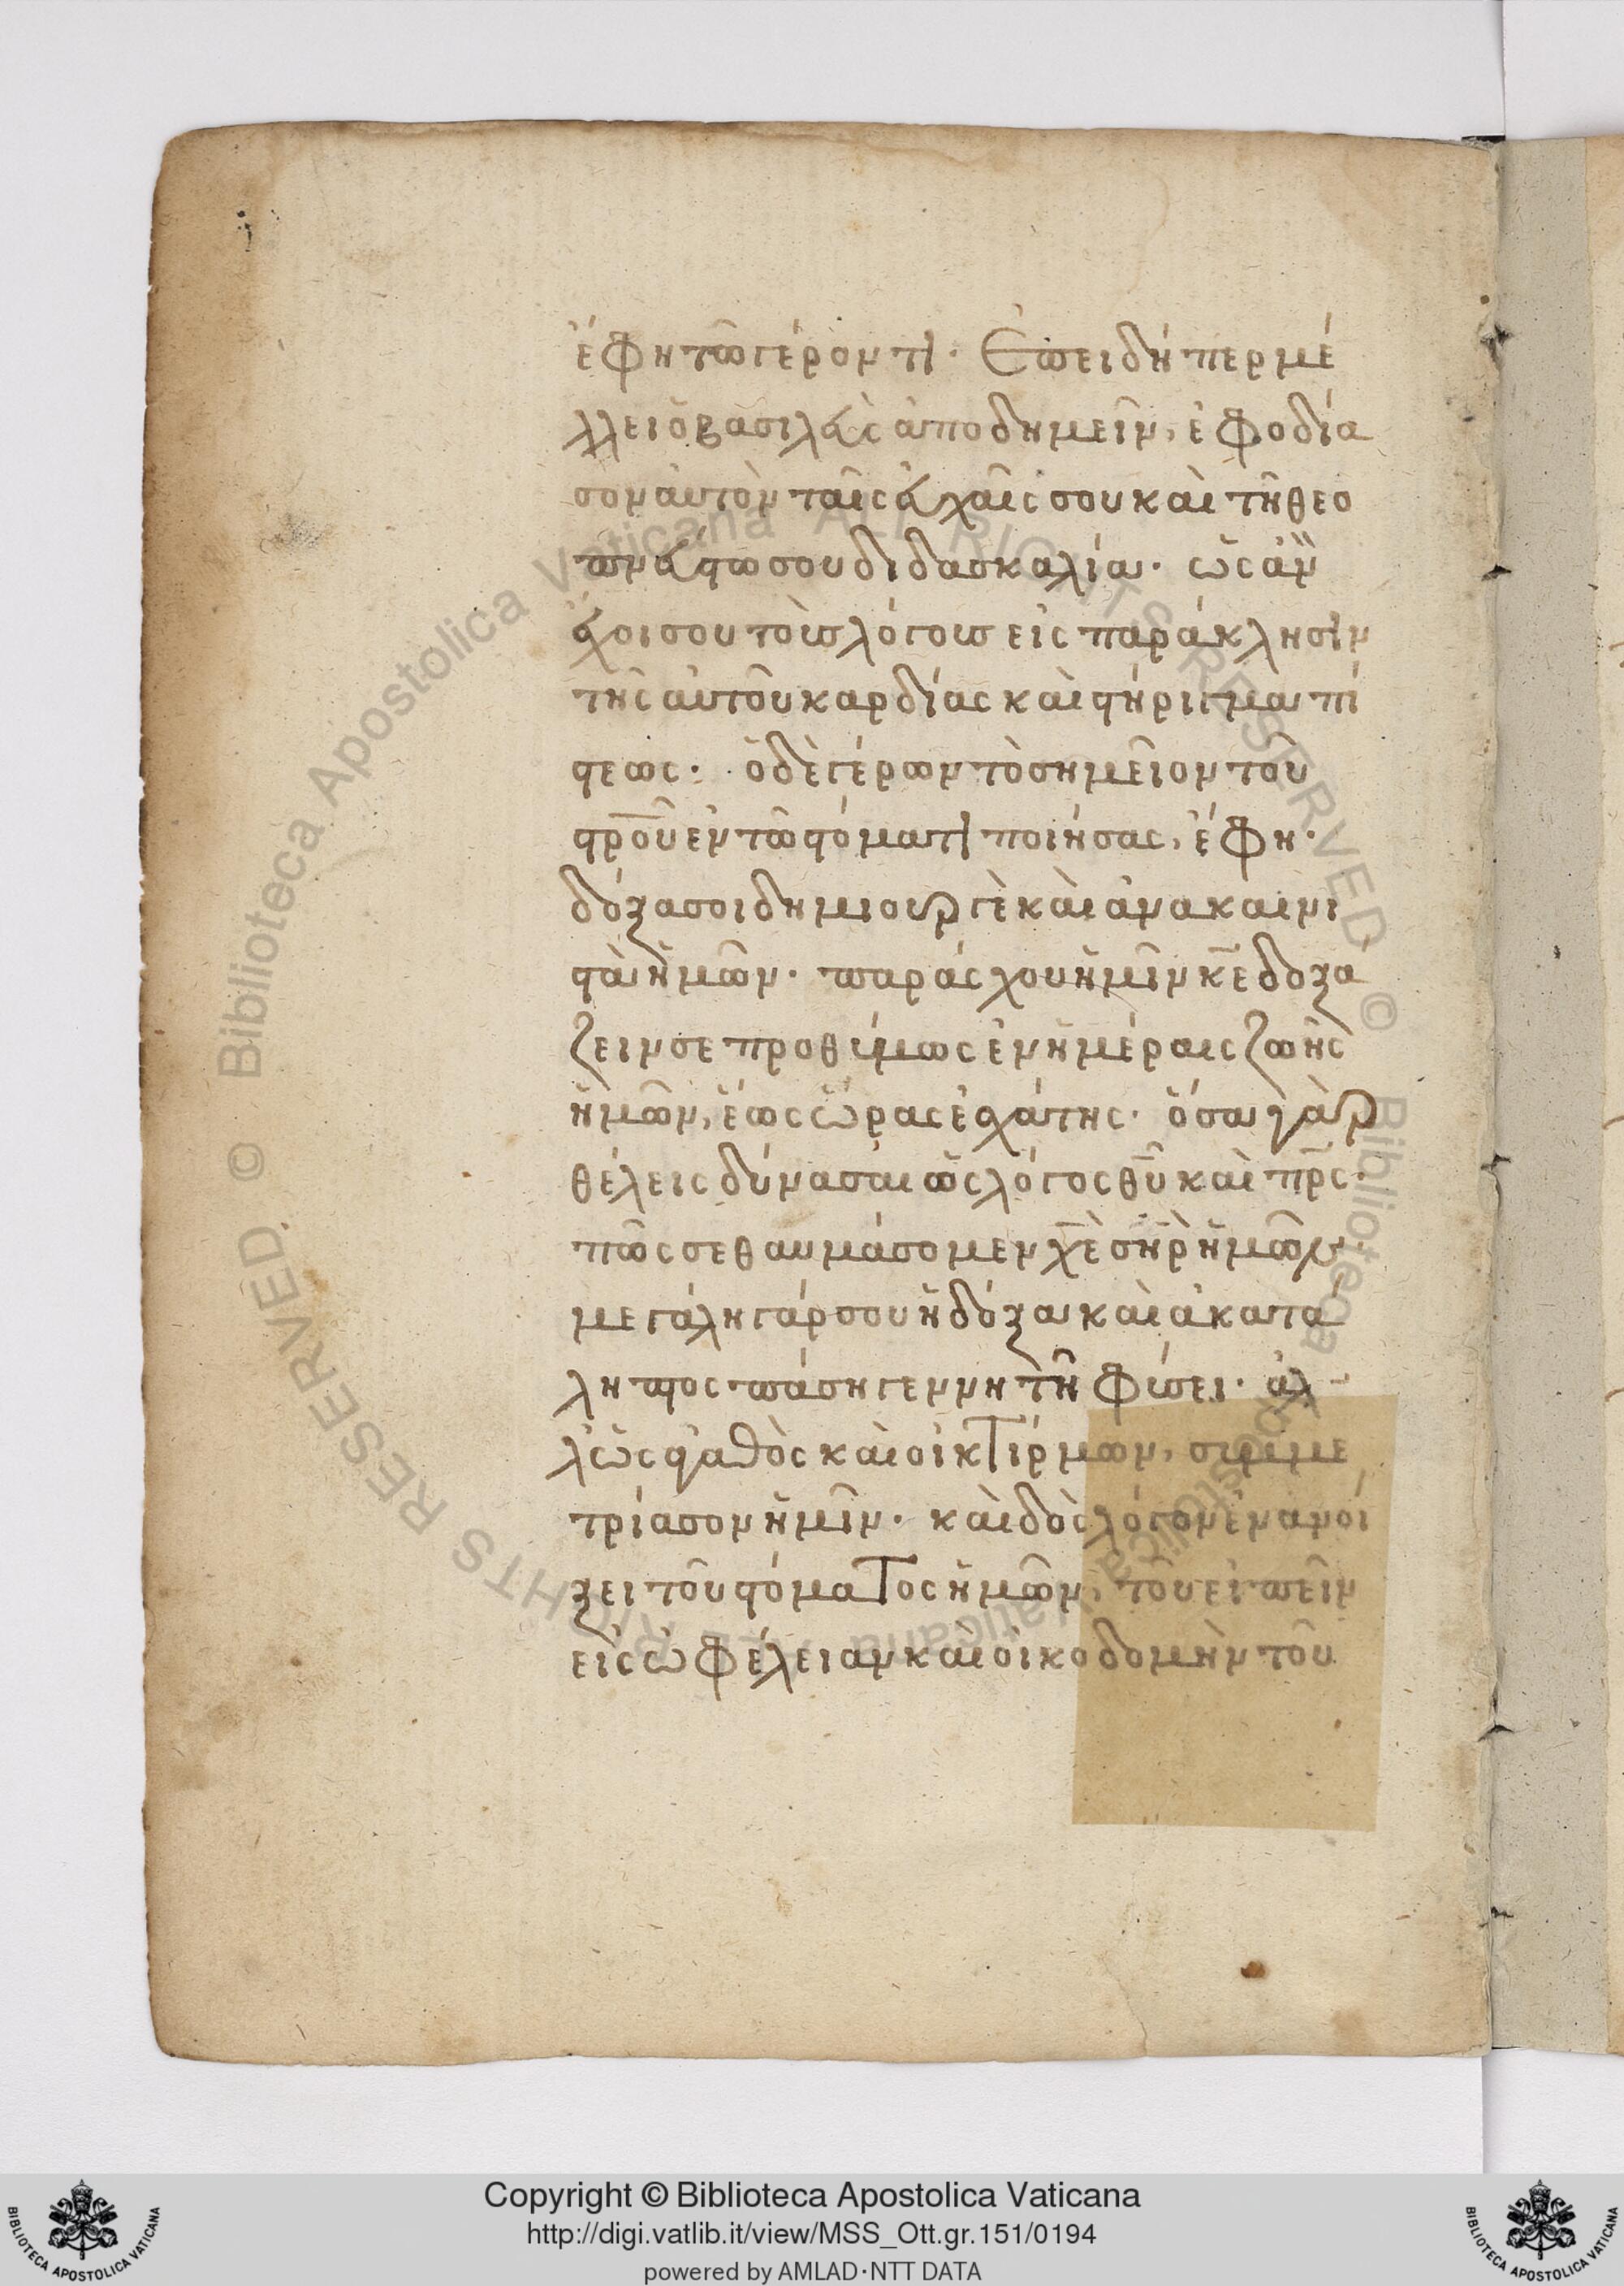 ἔφη τῶ γέροντι· Ἐπειδήπερ μέ
λλει ὁ βασιλεὺς ἀποδημεῖν, ἐφοδία
σον αὐτὸν ταῖς εὐχαῖς σου καὶ τῆ θεο
πνεύστω σου διδασκαλία· ὡς ἂν
ἔχοι σου τοὺς λόγους εἰς παράκλησιν
τῆς αὐτοῦ καρδίας καὶ στήριγμα πί
στεως· ὁ δὲ γέρων τὸ σημεῖον τοῦ
στροῦ ἐν τῶ στόματι ποιήσας, ἔφη·
δόξα σοι δημιουργὲ καὶ ἀνακαινι
στὰ ἡμῶν· παράσχου ἡμῖν κε δοξά
ζειν σε προθύμως ἐν ἡμέραις ζωῆς
ἡμῶν, ἕως ὥρας ἐσχάτης· ὅσα γὰρ
θέλεις δύνασαι ὡς λόγος θυ καὶ πρς·
πῶς σε θαυμάσομεν χε σηρ ἡμῶν·
μεγάλη γάρ σου ἡ δόξα καὶ ἀκατά
ληπτος πάση γεννητῆ φύσει· ἀλ
λ' ὡς ἀγαθὸς καὶ οἰκτίρμων, συμμε
τρίασον ἡμῖν· καὶ δὸς λόγον ἐν ἀνοί
ξει τοῦ στόματος ἡμῶν, τοῦ εἰπεῖν
εἰς ὠφέλειαν καὶ οἰκοδομὴν τοῦ
© Biblioteca Apostolica Vaticana ALL RIGHTS RESERVED. © Biblioteca Apostolica Vaticana ALL RIGHTS RESERVED.
Copyright © Biblioteca Apostolica Vaticana
http://digi.vatlib.it/view/MSS_Ott.gr.151/0194
powered by AMLAD·NTT DATA
BIBLIOTECA APOSTOLICA VATICANA
BIBLIOTECA APOSTOLICA VATICANA